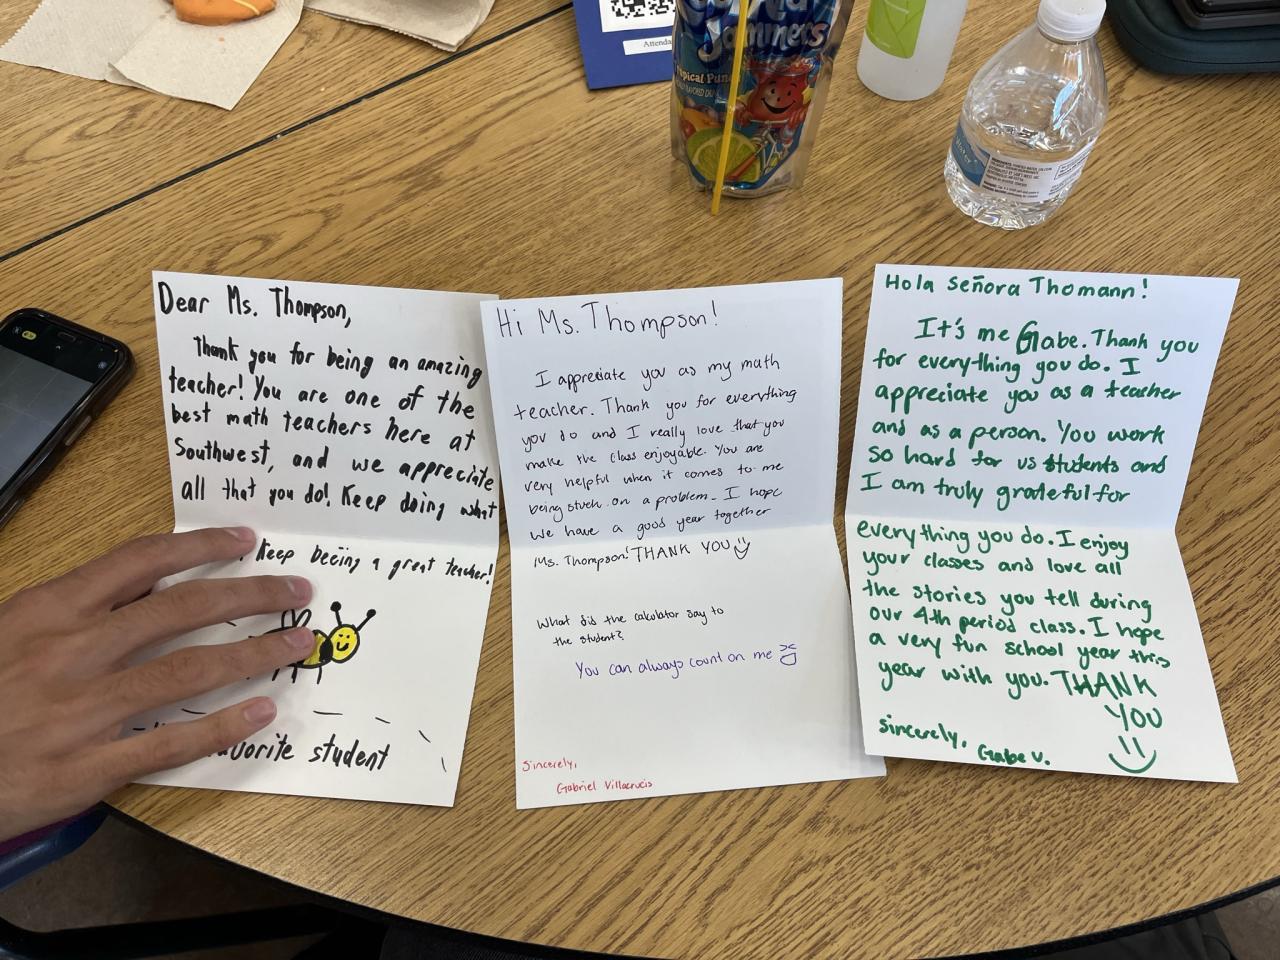 Attenda
Jammers
Tropical Punch
Dear Ms. Thompson,
Thank you for being an amazing
teacher! You are one of the
best math teachers here at
Southwest, and we appreciate
all that you do! Keep doing what
Keep beeing a great teacher!
favorite student
Hi Ms. Thompson!
I appreciate you as my math
teacher. Thank you for everything
you do and I really love that you
make the class enjoyable. You are
very helpful when it comes to me
being stuck on a problem. I hope
we have a good year together
Ms. Thompson! THANK YOU
What did the calculator say to
the student?
You can always count on me XD
Sincerely,
Gabriel Villacrucis
Hola Señora Thomann!
It's me Gabe. Thank you
for everything you do. I
appreciate you as a teacher
and as a person. You work
so hard for us students and
I am truly grateful for
everything you do. I enjoy
your classes and love all
the stories you tell during
our 4th period class. I hope
a very fun school year this
year with you. THANK
YOU
sincerely,
Gabe V.